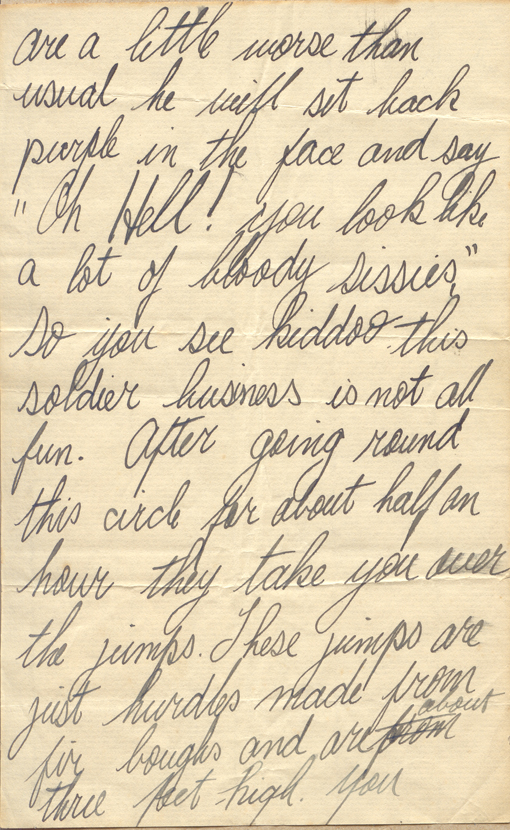 are a little worse than
usual he will sit back
purple in the face and say
"Oh Hell! you look like
a lot of bloody sissies,"
So you see kiddoo this
soldier business is not all
fun. After going round
this circle for about half an
hour they take you over
the jumps. These jumps are
just hurdles made from
about
fir boughs and are from
three feet high. You